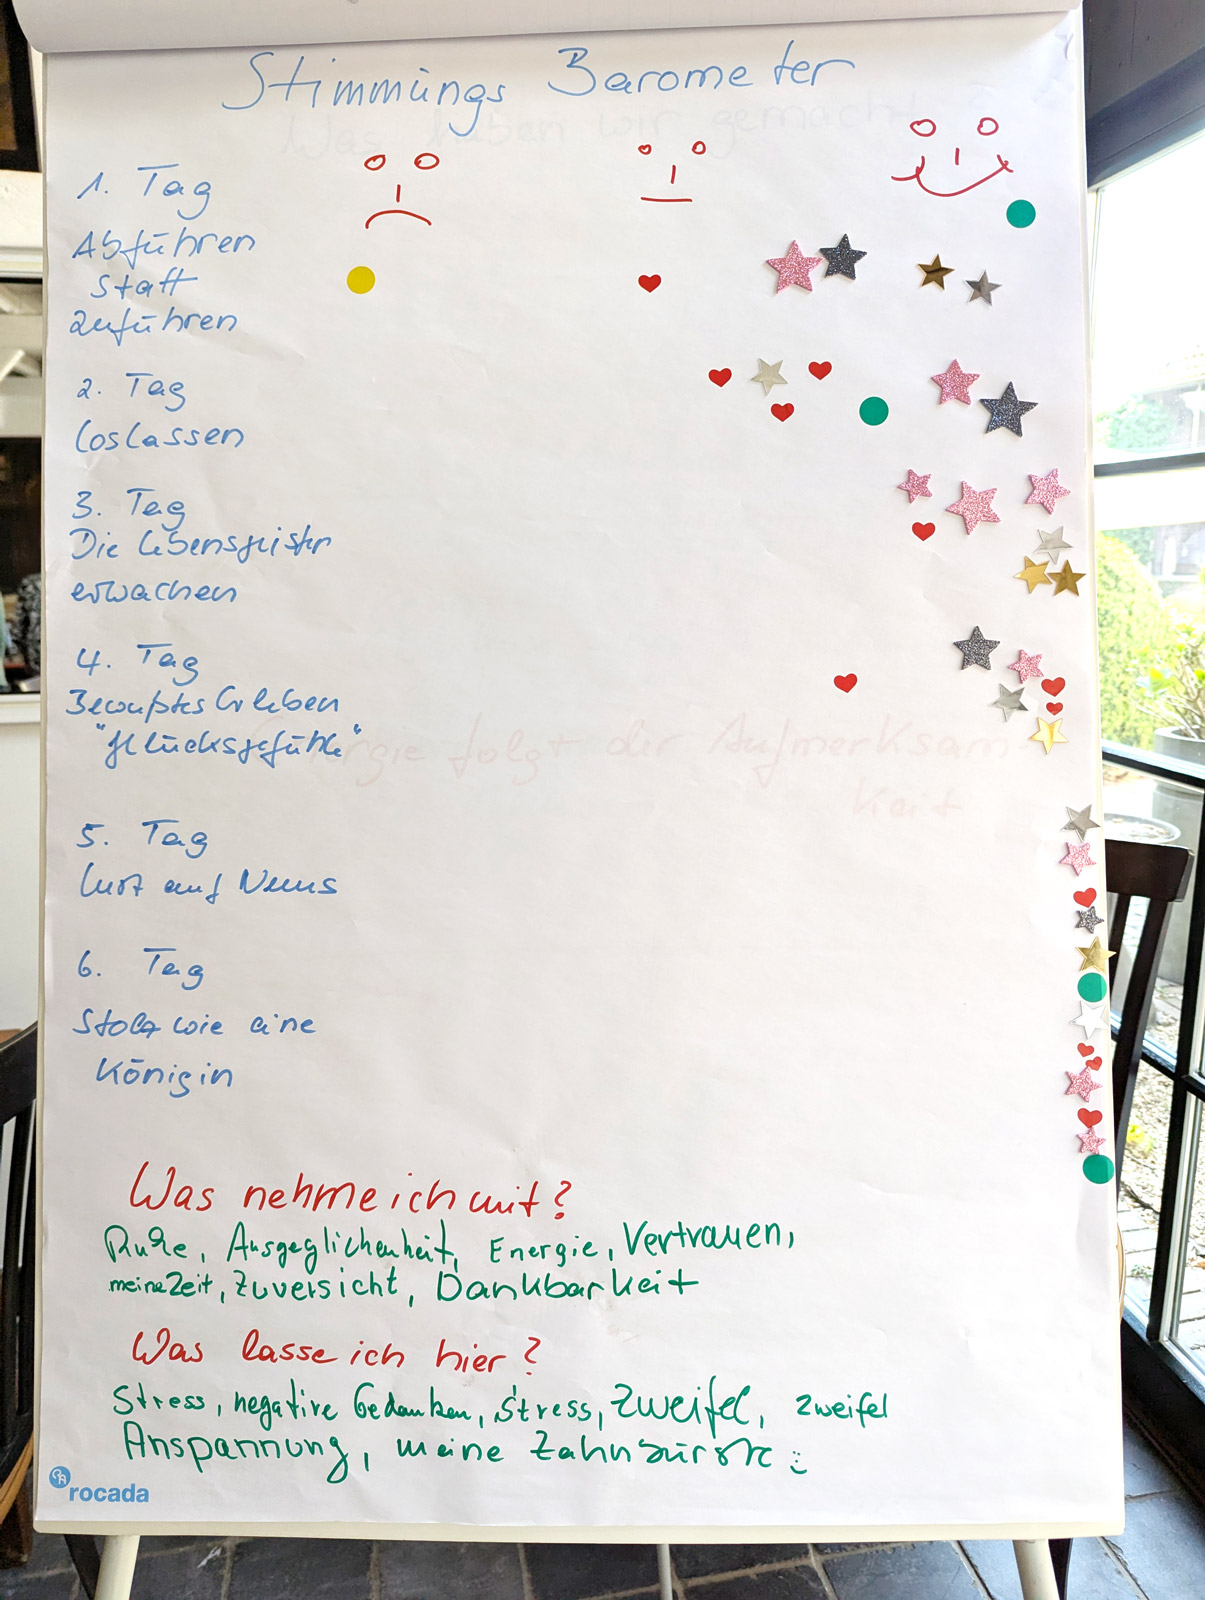 Stimmungs Barometer
Was haben wir gemacht
1. Tag
Abführen
statt
zuführen
2. Tag
Loslassen
3. Tag
Die Lebensgeister
erwachen
4. Tag
Bewußtes Erleben
"Glücksgefühle"
Energie folgt der Aufmerksam
keit
5. Tag
Lust auf Neues
6. Tag
Stolz wie eine
Königin
Was nehme ich mit?
Ruhe, Ausgeglichenheit, Energie, Vertrauen,
meine Zeit, Zuversicht, Dankbarkeit
Was lasse ich hier?
Stress, negative Gedanken, Stress, Zweifel, Zweifel
Anspannung, meine Zahnbürste
rocada